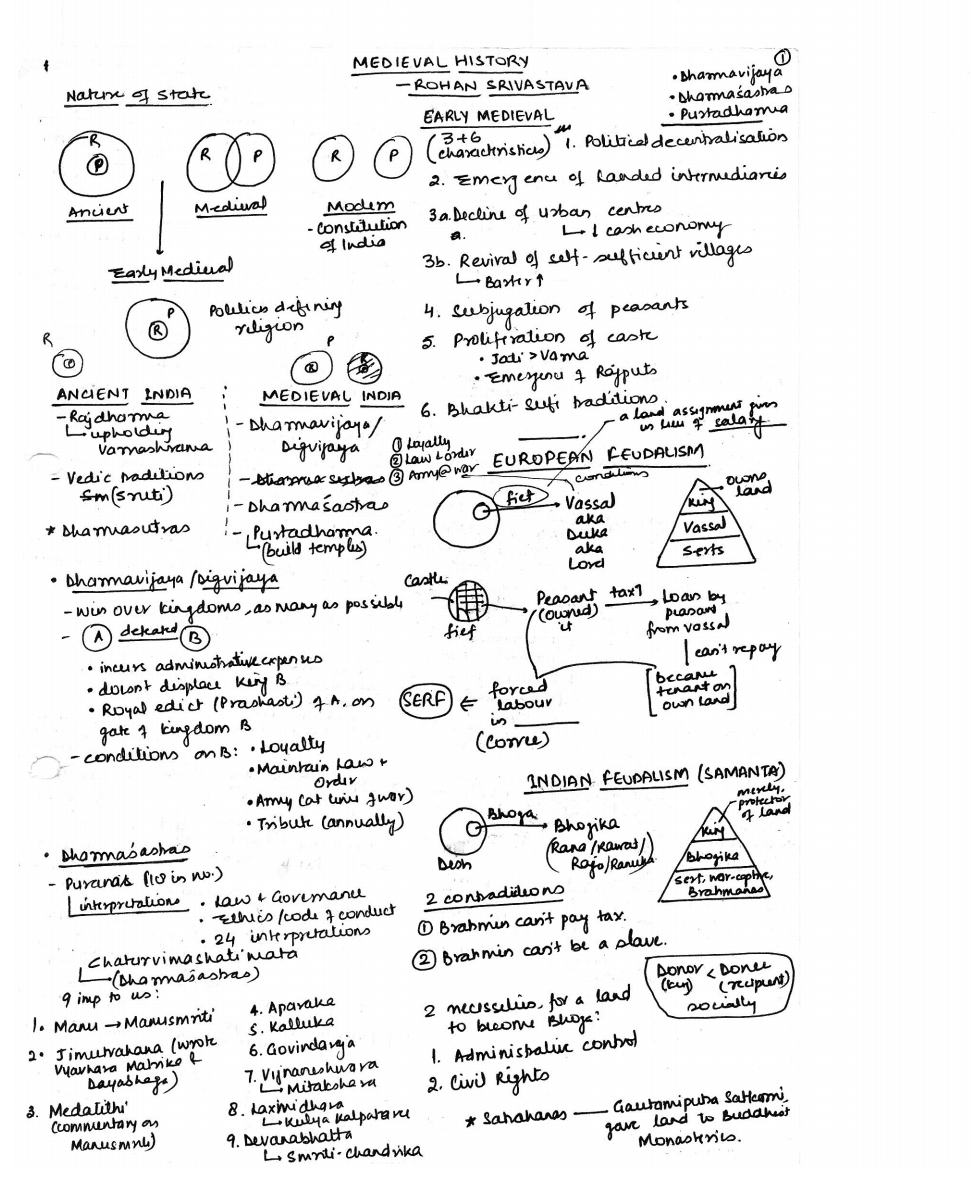 MEDIEVAL HISTORY
- ROHAN SRIVASTAVA
①
• Dharmavijaya
• Dharmaśastras
• Purtadharma
Nature of State
R
P
Ancient
R P
Medieval
R P
Modern
- Constitution
of India
Early Medieval
P
R
Politics defining
religion
R
P
P
R
R
ANCIENT INDIA
- Rajdharma
upholding
Varnashrama
- Vedic traditions
Sm (Sruti)
* Dharmasutras
MEDIEVAL INDIA
- Dharmavijaya/
Digvijaya
- Dharma sutras
- Dharmaśastras
- Purtadharma.
(build temples)
• Dharmavijaya/Digvijaya
- Win over kingdoms, as many as possible
- A defeated B
• incurs administrative expenses
• doesn't displace King B
• Royal edict (Prashasti) of A, on
gate of kingdom B
- conditions on B: • Loyalty
• Maintain Law +
Order
• Army (at time of war)
• Tribute (annually)
• Dharmaśastras
- Puranas (18 in no.)
interpretations • Law + Governance
• Ethics/code of conduct
• 24 interpretations
Chaturvimashatimata
(Dharmaśastras)
9 imp to us:
1. Manu → Manusmriti
2. Jimutvahana (wrote
Vyavhara Matrika &
Dayabhaga)
3. Medatithi
(commentary on
Manusmriti)
4. Aparaka
5. Kalluka
6. Govindaraja
7. Vijnaneshwara
Mitakshara
8. Laxmidhara
Kritya Kalpataru
9. Devanabhatta
Smriti-Chandrika
EARLY MEDIEVAL
(3+6
characteristics)
1. Political decentralisation
2. Emergence of Landed intermediaries
3a. Decline of urban centres
a. ↳ ↓ cash economy
3b. Revival of self-sufficient villages
↳ Barter ↑
4. Subjugation of peasants
5. Proliferation of caste
• Jati > Varna
• Emergence of Rajputs
6. Bhakti-Sufi traditions.
a land assignment given
in lieu of salary
① Loyalty
② Law & order
③ Army @ war
EUROPEAN FEUDALISM
conditions
fief
Vassal
aka
Duke
aka
Lord
owns
land
King
Vassal
Serfs
Castle
fief
Peasant
(owned)
it
tax↑
Loan by
peasant
from vassal
can't repay
[became
tenant on
own land]
SERF ⇐ forced
labour
in
(Corvee)
INDIAN FEUDALISM (SAMANTA)
Bhoga
Desh
Bhogika
(Rana/Rawat/
Raja/Ranuka
merely,
protector
of land
King
Bhogika
Serf, war-captive,
Brahmanas
2 contradictions
① Brahmin can't pay tax.
② Brahmin can't be a slave.
Donor < Donee
(king) (recipient)
socially
2 necessities, for a land
to become Bhoga:
1. Administrative control
2. Civil Rights
* Satvahanas — Gautamiputra Satkarni
gave land to Buddhist
Monasteries.